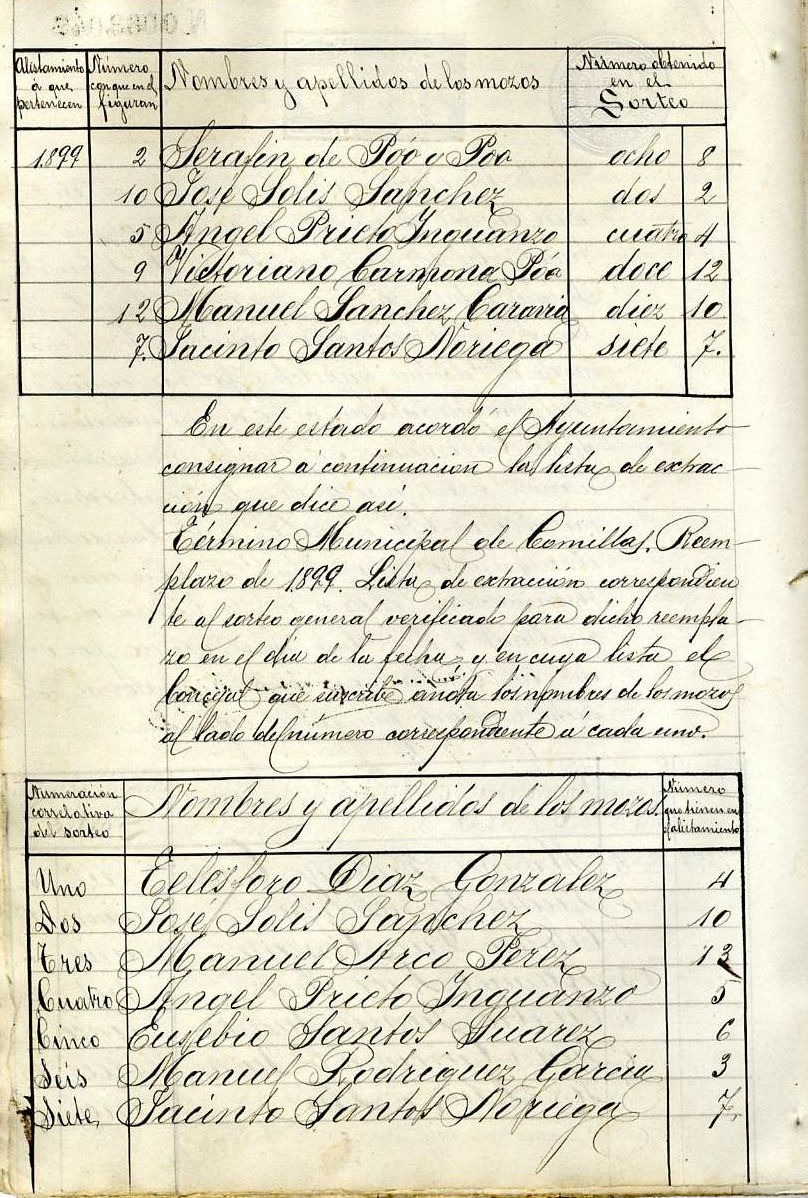 Alistamiento á que pertenecen | Número con que en el figuran | Nombres y apellidos de los mozos | Número obtenido en el Sorteo
1899 | 2 | Serafin de Póo y Póo | ocho | 8
10 | José Solis Sanchez | dos | 2
5 | Angel Prieto Inguanzo | cuatro | 4
9 | Victoriano Carmona Póo | doce | 12
12 | Manuel Sanchez Caravia | diez | 10
7. | Jacinto Santos Noriega | siete | 7.
En este estado acordó el Ayuntamiento
consignar á continuacion la lista de extrac-
ción que dice así.
Término Municipal de Comillas. Reem-
plazo de 1899. Lista de extracción correspondien
te al sorteo general verificado para dicho reempla-
zo en el día de la fecha, y en cuya lista el
Concejal que suscribe anota los nombres de los mozos
al lado del número correspondiente á cada uno.
Numeración correlativa del sorteo | Nombres y apellidos de los mozos. | Número que tienen en el alistamiento
Uno | Telesforo Diaz Gonzalez | 4
Dos | José Solis Sánchez | 10
Tres | Manuel Arco Perez | 13
Cuatro | Angel Prieto Inguanzo | 5
Cinco | Eusebio Santos Suarez | 6
Seis | Manuel Rodriguez Garcia | 3
Siete | Jacinto Santos Noriega | 7.